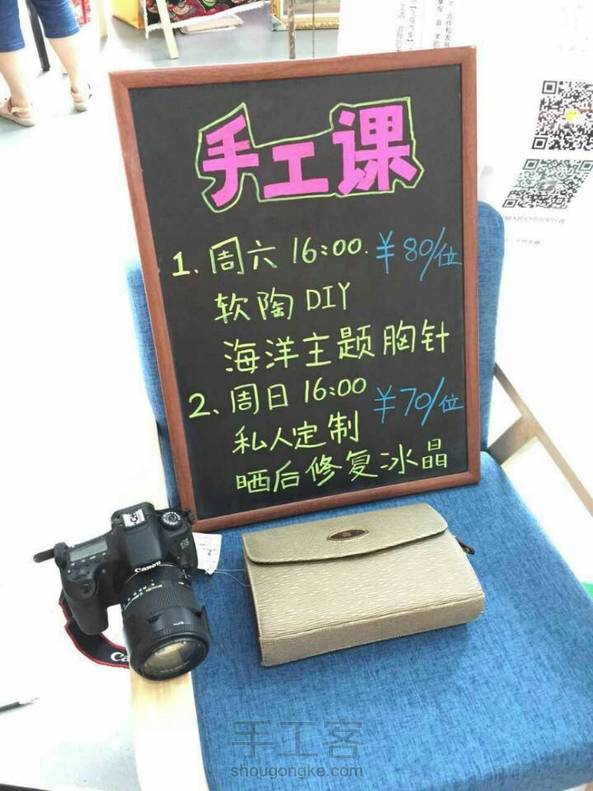 手工课
1. 周六 16:00. ¥80/位
软陶DIY
海洋主题胸针
2. 周日 16:00 ¥70/位
私人定制
晒后修复冰晶
Canon
手工客
shougongke.com